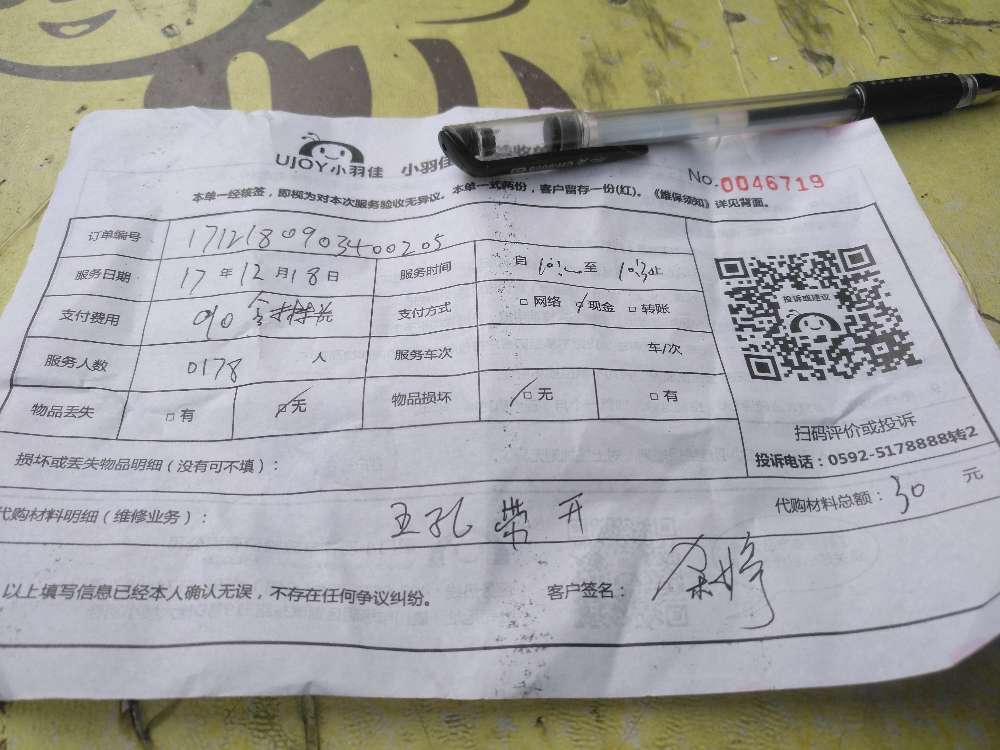 UJOY小羽佳 小羽佳
No.0046719
本单一经核签，即视为对本次服务验收无异议。本单一式两份，客户留存一份(红)。《维保须知》详见背面。
订单编号 1712180903400205
服务日期 17年12月18日 服务时间 自 至 止
支付费用 90 支付方式 □网络 ☑现金 □转账
服务人数 0178 人 服务车次 车/次
物品丢失 □有 ☑无 物品损坏 ☑无 □有
投诉或建议
扫码评价或投诉
投诉电话：0592-5178888转2
损坏或丢失物品明细（没有可不填）：
代购材料明细（维修业务）： 五孔带开 代购材料总额：30元
以上填写信息已经本人确认无误，不存在任何争议纠纷。 客户签名：